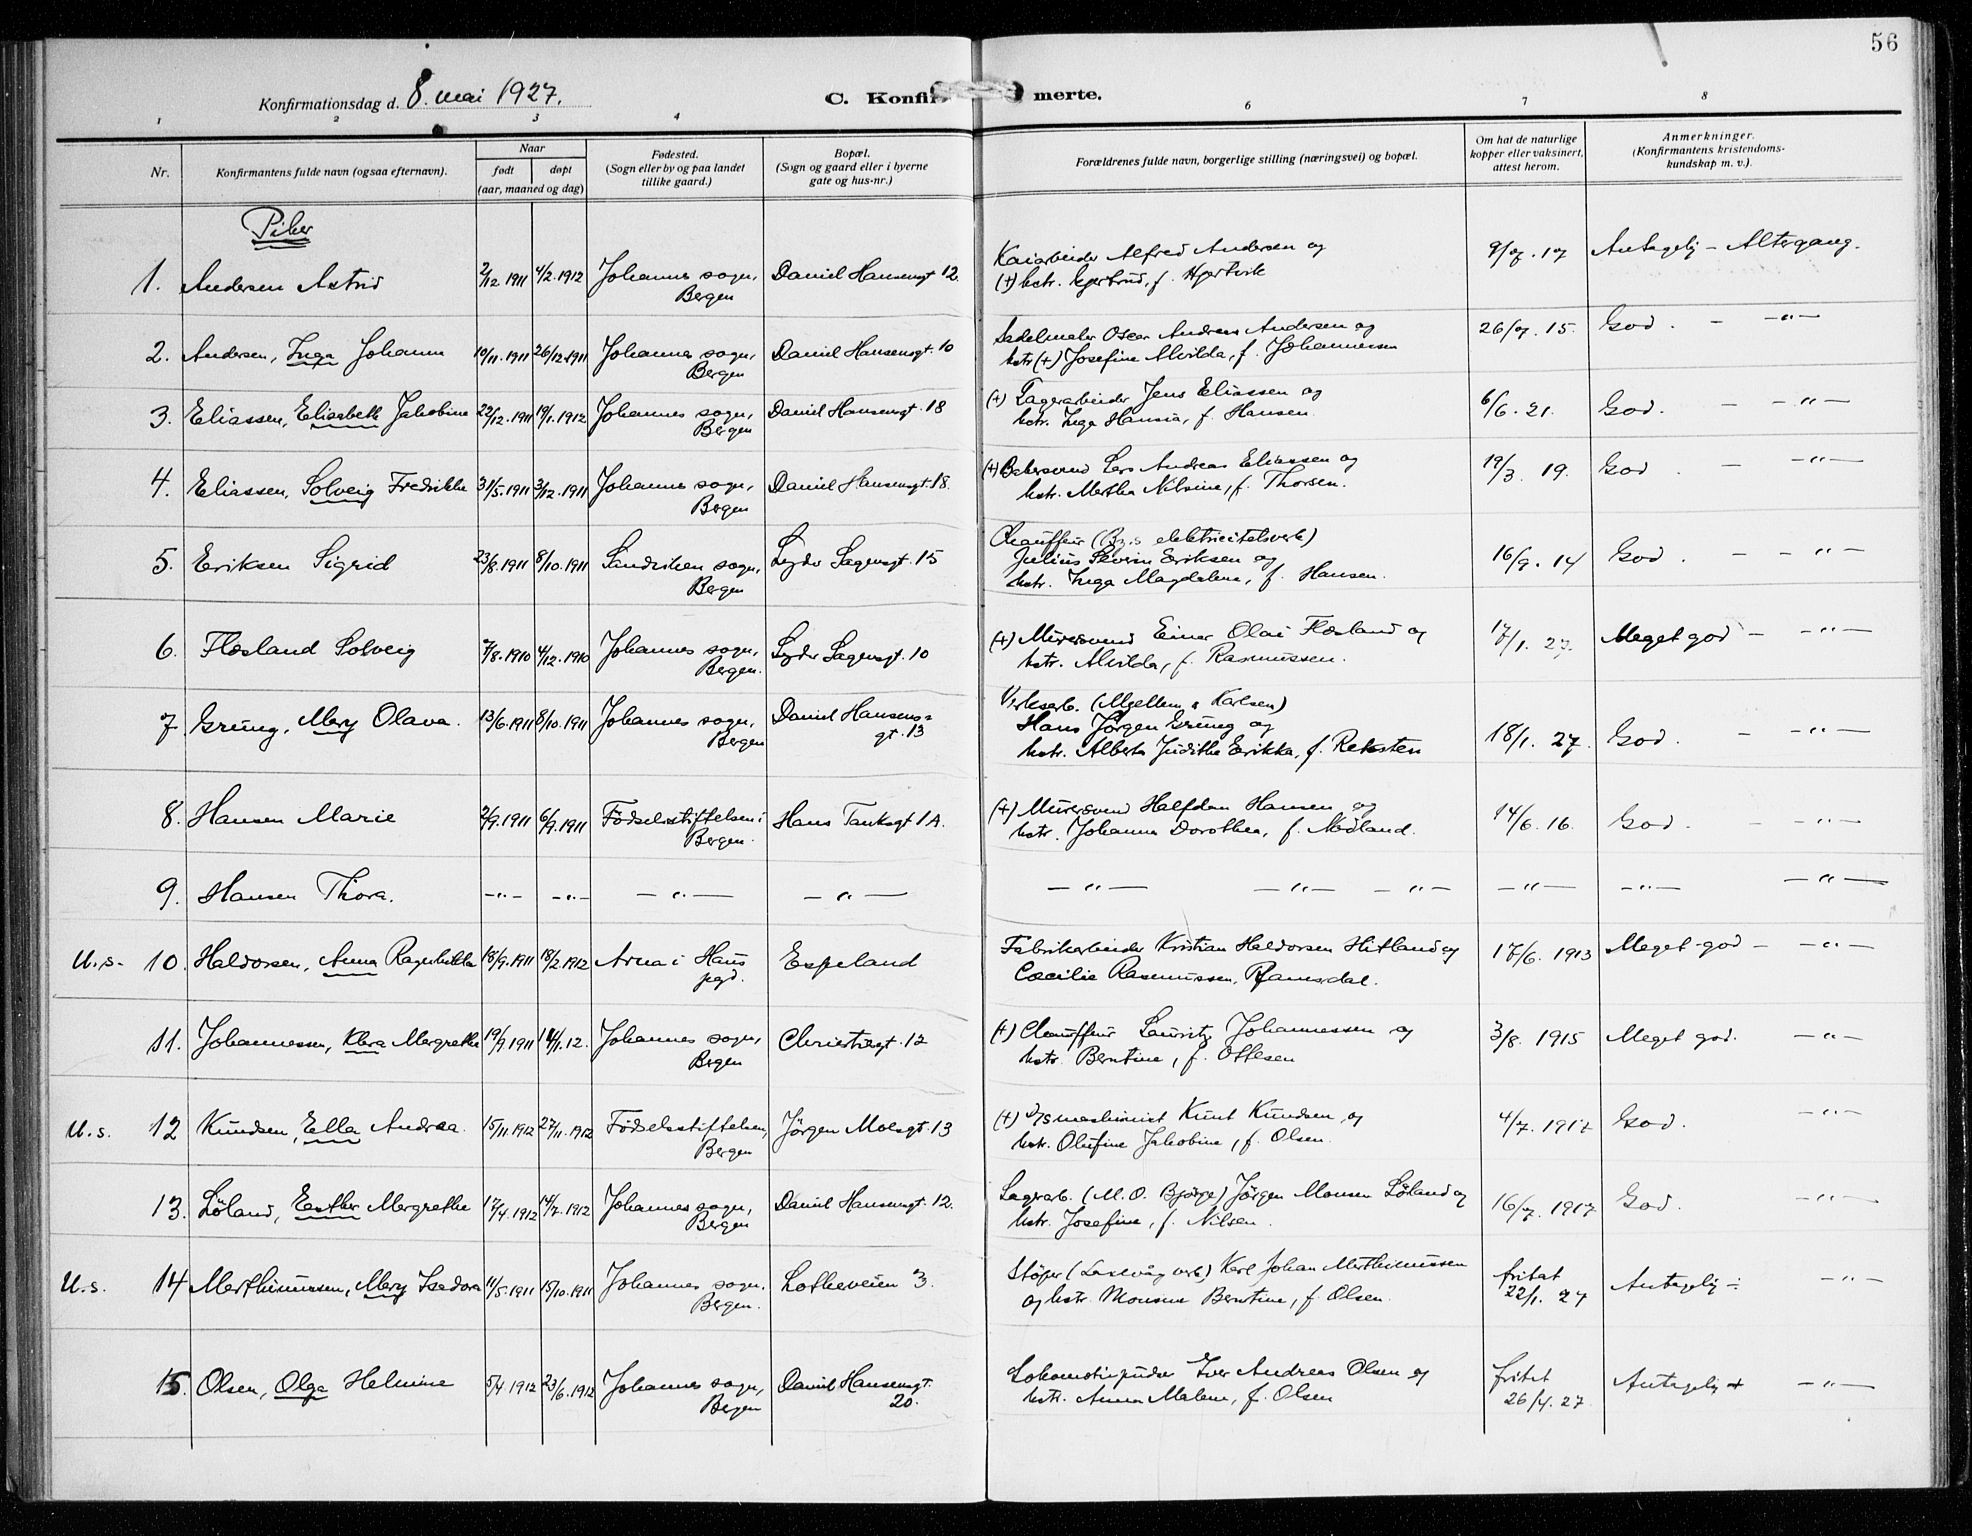 56
Konfirmationsdag d. 8. mai 1927.
C. Konfir merte.
1 2 3 4 6 7 8
Nr. Konfirmantens fulde navn (ogsaa efternavn). Naar født døpt (aar, maaned og dag) Fødested. (Sogn eller by og paa landet tillike gaard.) Bopæl. (Sogn og gaard eller i byerne gate og hus-nr.) Forældrenes fulde navn, borgerlige stilling (næringsvei) og bopæl. Om hat de naturlige kopper eller vaksinert, attest herom. Anmerkninger. (Konfirmantens kristendoms-kundskap m. v.).
Piker
1. Andersen Astrid 2/12 1911 4/2. 1912 Johannes sogn, Bergen Daniel Hansensgt 12. Kaiarbeider Alfred Andersen og
(+) hstr. Gjertrud, f. Hjertvik 9/7. 17 Antagelig – Altergang.
2. Andersen, Inga Johanna 10/11. 1911 26/12 1911 Johannes sogn, Bergen Daniel Hansensgt. 10 Sadelmaker Oscar Andreas Andersen og
hstr (+) Josefine Alvilda, f. Johannessen 26/7. 15. God. – –"–
3. Eliassen, Elisabeth Jakobine 22/12. 1911 19/1. 1912 Johannes sogn, Bergen Daniel Hansensgt. 18 (+) Lagerarbeider Jens Eliassen og
hstr. Inga Hansia, f. Hansen. 6/6. 21. God. – –"–
4. Eliassen, Solveig Fredrikke 31/5. 1911 3/12. 1911 Johannes sogn, Bergen Daniel Hansensgt. 18. (+) Bakersvend Lars Andreas Eliassen og
hstr. Martha Nilsine, f. Thorsen. 19/3. 19. God. – –"–
5. Eriksen Sigrid 23/8. 1911 8/10. 1911 Sandviken sogn, Bergen Lyder Sagensgt. 15 Chauffeur (Bg.s elektricitetsverk)
Julius Severin Eriksen og
hstr. Inga Magdalene, f. Hansen. 16/9. 14 God. – –"–
6. Flesland Solveig 7/8. 1910 4/12. 1910 Johannes sogn, Bergen. Lyder Sagensgt. 10 (+) Murersvend Einar Olai Flesland og
hstr. Alvilda, f. Rasmussen. 17/1. 27. Meget god – –"–
7. Grung, Mary Olava. 13/6. 1911 8/10. 1911 Johannes sogn, Bergen Daniel Hansens=
gt. 13 Verksarb. (Mjellem & Karlsen)
Hans Jörgen Grung og
hstr. Alberta Judithe Erikka, f. Reksten 18/1. 27. God. – –"–
8. Hansen Marie 2/9. 1911 6/9. 1911 Födselsstiftelsen i Bergen. Hans Tanksgt 1 A. (+) Murersvend Halfdan Hansen og
hstr. Johanna Dorothea, f. Nödland. 14/6. 16. God. – –"–
9. Hansen Thora. –"– –"– –"– –"– –"– –"– –"– –"– –"– –"–
U.s. 10. Haldorsen, Anna Ragnhilda 18/9. 1911 18/2. 1912 Arna i Haus pgd. Espeland Fabrikarbeider Kristian Haldorsen Hitland og
Cæcilie Rasmussen, Ramsdal. 17/6. 1913 Meget god – –"–
11. Johannessen, Klara Margrethe 19/9 1911 14/1. 12. Johannes sogn, Bergen Christiesgt. 12 (+) Chauffeur Lauritz Johannessen og
hstr. Berntine, f. Ottesen 3/8. 1915 Meget god. –"–
U.s. 12 Knudsen, Ella Andrea. 15/11. 1912 27/11. 1912 Födselsstiftelsen, Bergen Jörgen Moesgt. 13 (+) maskinist Knut Knudsen og
hstr. Olufine Jakobine, f. Olsen. 4/7. 1917 God. –"–
13. Löland, Esther Margrethe 17/4. 1912 14/7. 1912 Johannes sogn, Bergen Daniel Hansensgt. 12. Lagerarb. (M. O. Bjørge) Jörgen Monsen Löland og
hstr. Josefine, f. Nilsen. 16/7. 1917 God. –"–
U.s. 14 Marthinussen, Mary Isadora 11/5. 1911 15/10. 1911 Johannes sogn. Bergen. Lotheveien 3. Stöper (Laxevåg verk) Karl Johan Marthinussen
og hstr. Monsine Berntine, f. Olsen. fritat
22/1. 27 Antagelig ÷ –"–
15. Olsen, Olga Helmine 5/4. 1912 23/6. 1912 Johannes sogn, Bergen Daniel Hansensgt.
20. Lokomotivpudser Iver Andreas Olsen og
hstr. Anna Malene, f. Olsen fritat
26/4. 27. Antagelig + –"–